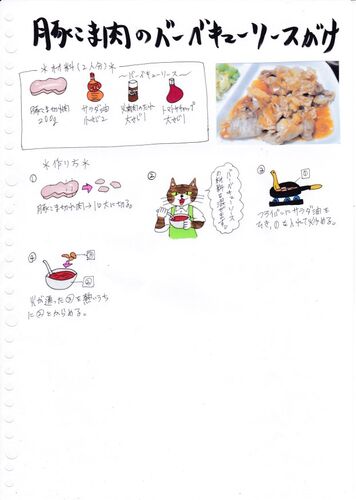 豚こま肉のバーベキューソースがけ
＊材料(2人分)＊
〜バーベキューソース〜
豚こま切れ肉
200g
サラダ油
小さじ2
焼肉のたれ
大さじ1
トマトケチャップ
大さじ1
＊作り方＊
①
豚こま切れ肉→1口大に切る。
②
バーベキューソース
の材料を混ぜます。
③
フライパンにサラダ油を
①を入れて炒める。
④
火が通った③を熱いうち
に②とからめる。